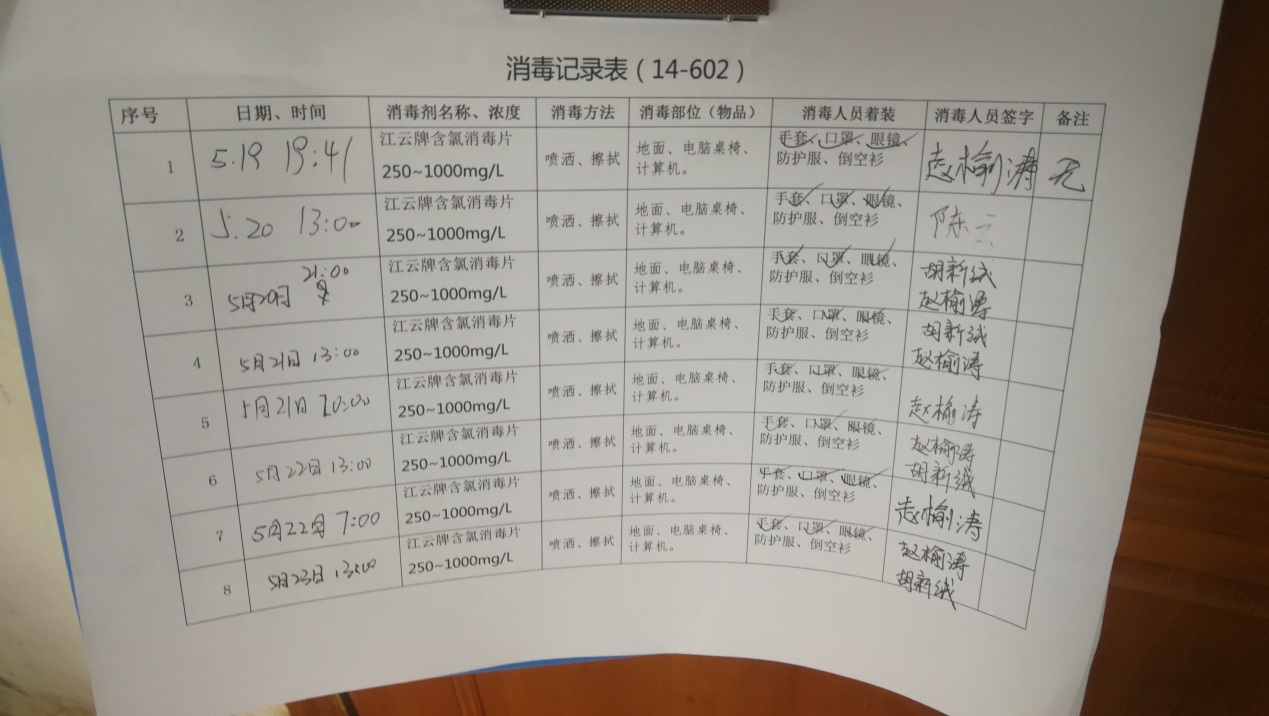 消毒记录表（14-602）
序号 日期、时间 消毒剂名称、浓度 消毒方法 消毒部位（物品） 消毒人员着装 消毒人员签字 备注
1 5.19 19:41 江云牌含氯消毒片 250~1000mg/L 喷洒、擦拭 地面、电脑桌椅、计算机。 手套、口罩、眼镜、防护服、倒空衫 赵榆涛 无
2 5.20 13:00 江云牌含氯消毒片 250~1000mg/L 喷洒、擦拭 地面、电脑桌椅、计算机。 手套、口罩、眼镜、防护服、倒空衫 陈云
3 5月20日 21:00 江云牌含氯消毒片 250~1000mg/L 喷洒、擦拭 地面、电脑桌椅、计算机。 手套、口罩、眼镜、防护服、倒空衫 胡新绒 赵榆涛
4 5月21日 13:00 江云牌含氯消毒片 250~1000mg/L 喷洒、擦拭 地面、电脑桌椅、计算机。 手套、口罩、眼镜、防护服、倒空衫 胡新绒 赵榆涛
5 5月21日 20:00 江云牌含氯消毒片 250~1000mg/L 喷洒、擦拭 地面、电脑桌椅、计算机。 手套、口罩、眼镜、防护服、倒空衫 赵榆涛
6 5月22日 13:00 江云牌含氯消毒片 250~1000mg/L 喷洒、擦拭 地面、电脑桌椅、计算机。 手套、口罩、眼镜、防护服、倒空衫 赵榆涛 胡新绒
7 5月22日 7:00 江云牌含氯消毒片 250~1000mg/L 喷洒、擦拭 地面、电脑桌椅、计算机。 手套、口罩、眼镜、防护服、倒空衫 赵榆涛
8 5月23日 13:00 江云牌含氯消毒片 250~1000mg/L 喷洒、擦拭 地面、电脑桌椅、计算机。 手套、口罩、眼镜、防护服、倒空衫 赵榆涛 胡新绒